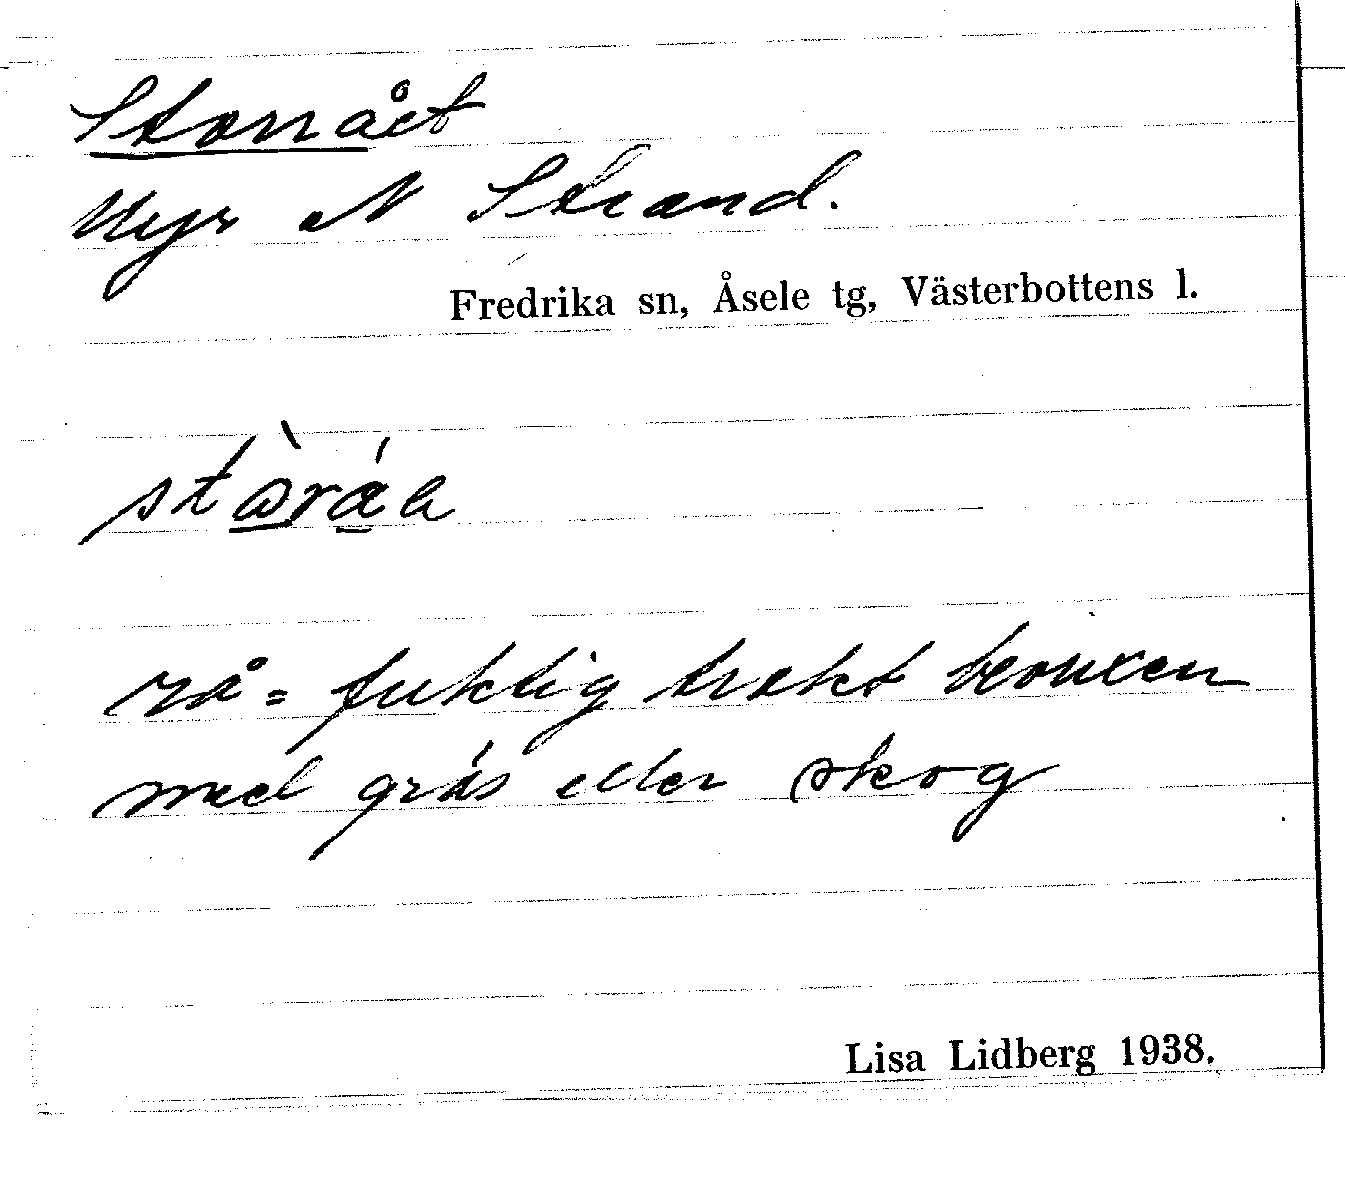 Storrået
Myr N Strand.
Fredrika sn, Åsele tg, Västerbottens l.
rå = fuktig trakt beväxen
med gräs eller skog
Lisa Lidberg 1938.